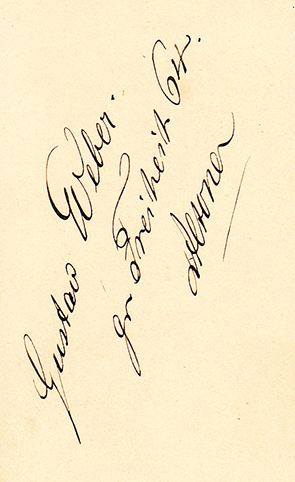 Gustav Weber.
gr Freiheit 64.
Altona